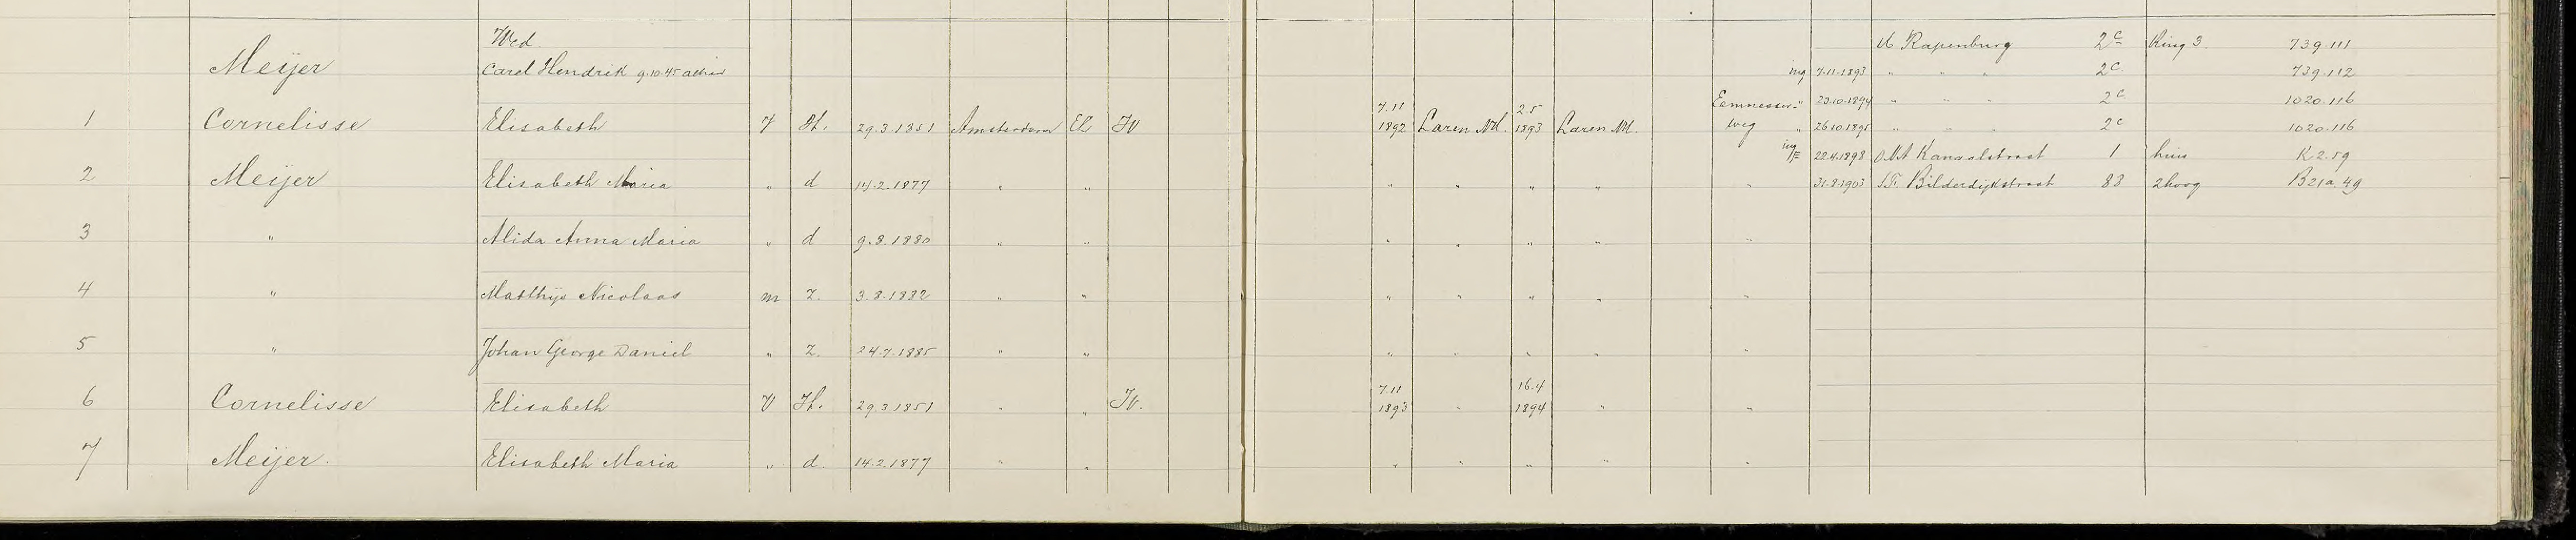 Wed. U Rapenburg 2c Ring 3. 739.111
Meijer Carel Hendrik 9.10.45 alhier ing 7.11.1893 " " " 2c. 739.112
Eemnesser- " 23.10.1894 " " " 2c 1020.116
1 Cornelisse Elisabeth V H. 29.3.1851 Amsterdam EL W 7.11 1892 Laren NH. 2.5 1893 Laren NH. weg " 26.10.1895 " " " 2c 1020.116
ing 22.4.1898 Kanaalstraat 1 huis K2.59
2 Meijer Elisabeth Maria " d 14.2.1877 " " " " " " " 31.8.1903 Bilderdijkstraat 88 2hoog B21a.49
3 " Alida Anna Maria " d 9.8.1880 " " " " " " "
4 " Matthijs Nicolaas m Z. 3.8.1882 " " " " " " "
5 " Johan George Daniel " Z. 24.7.1885 " " " " " " "
6 Cornelisse Elisabeth V H. 29.3.1851 " " W. 7.11 1893 " 16.4 1894 " "
7 Meijer. Elisabeth Maria " d 14.2.1877 " " " " " " "